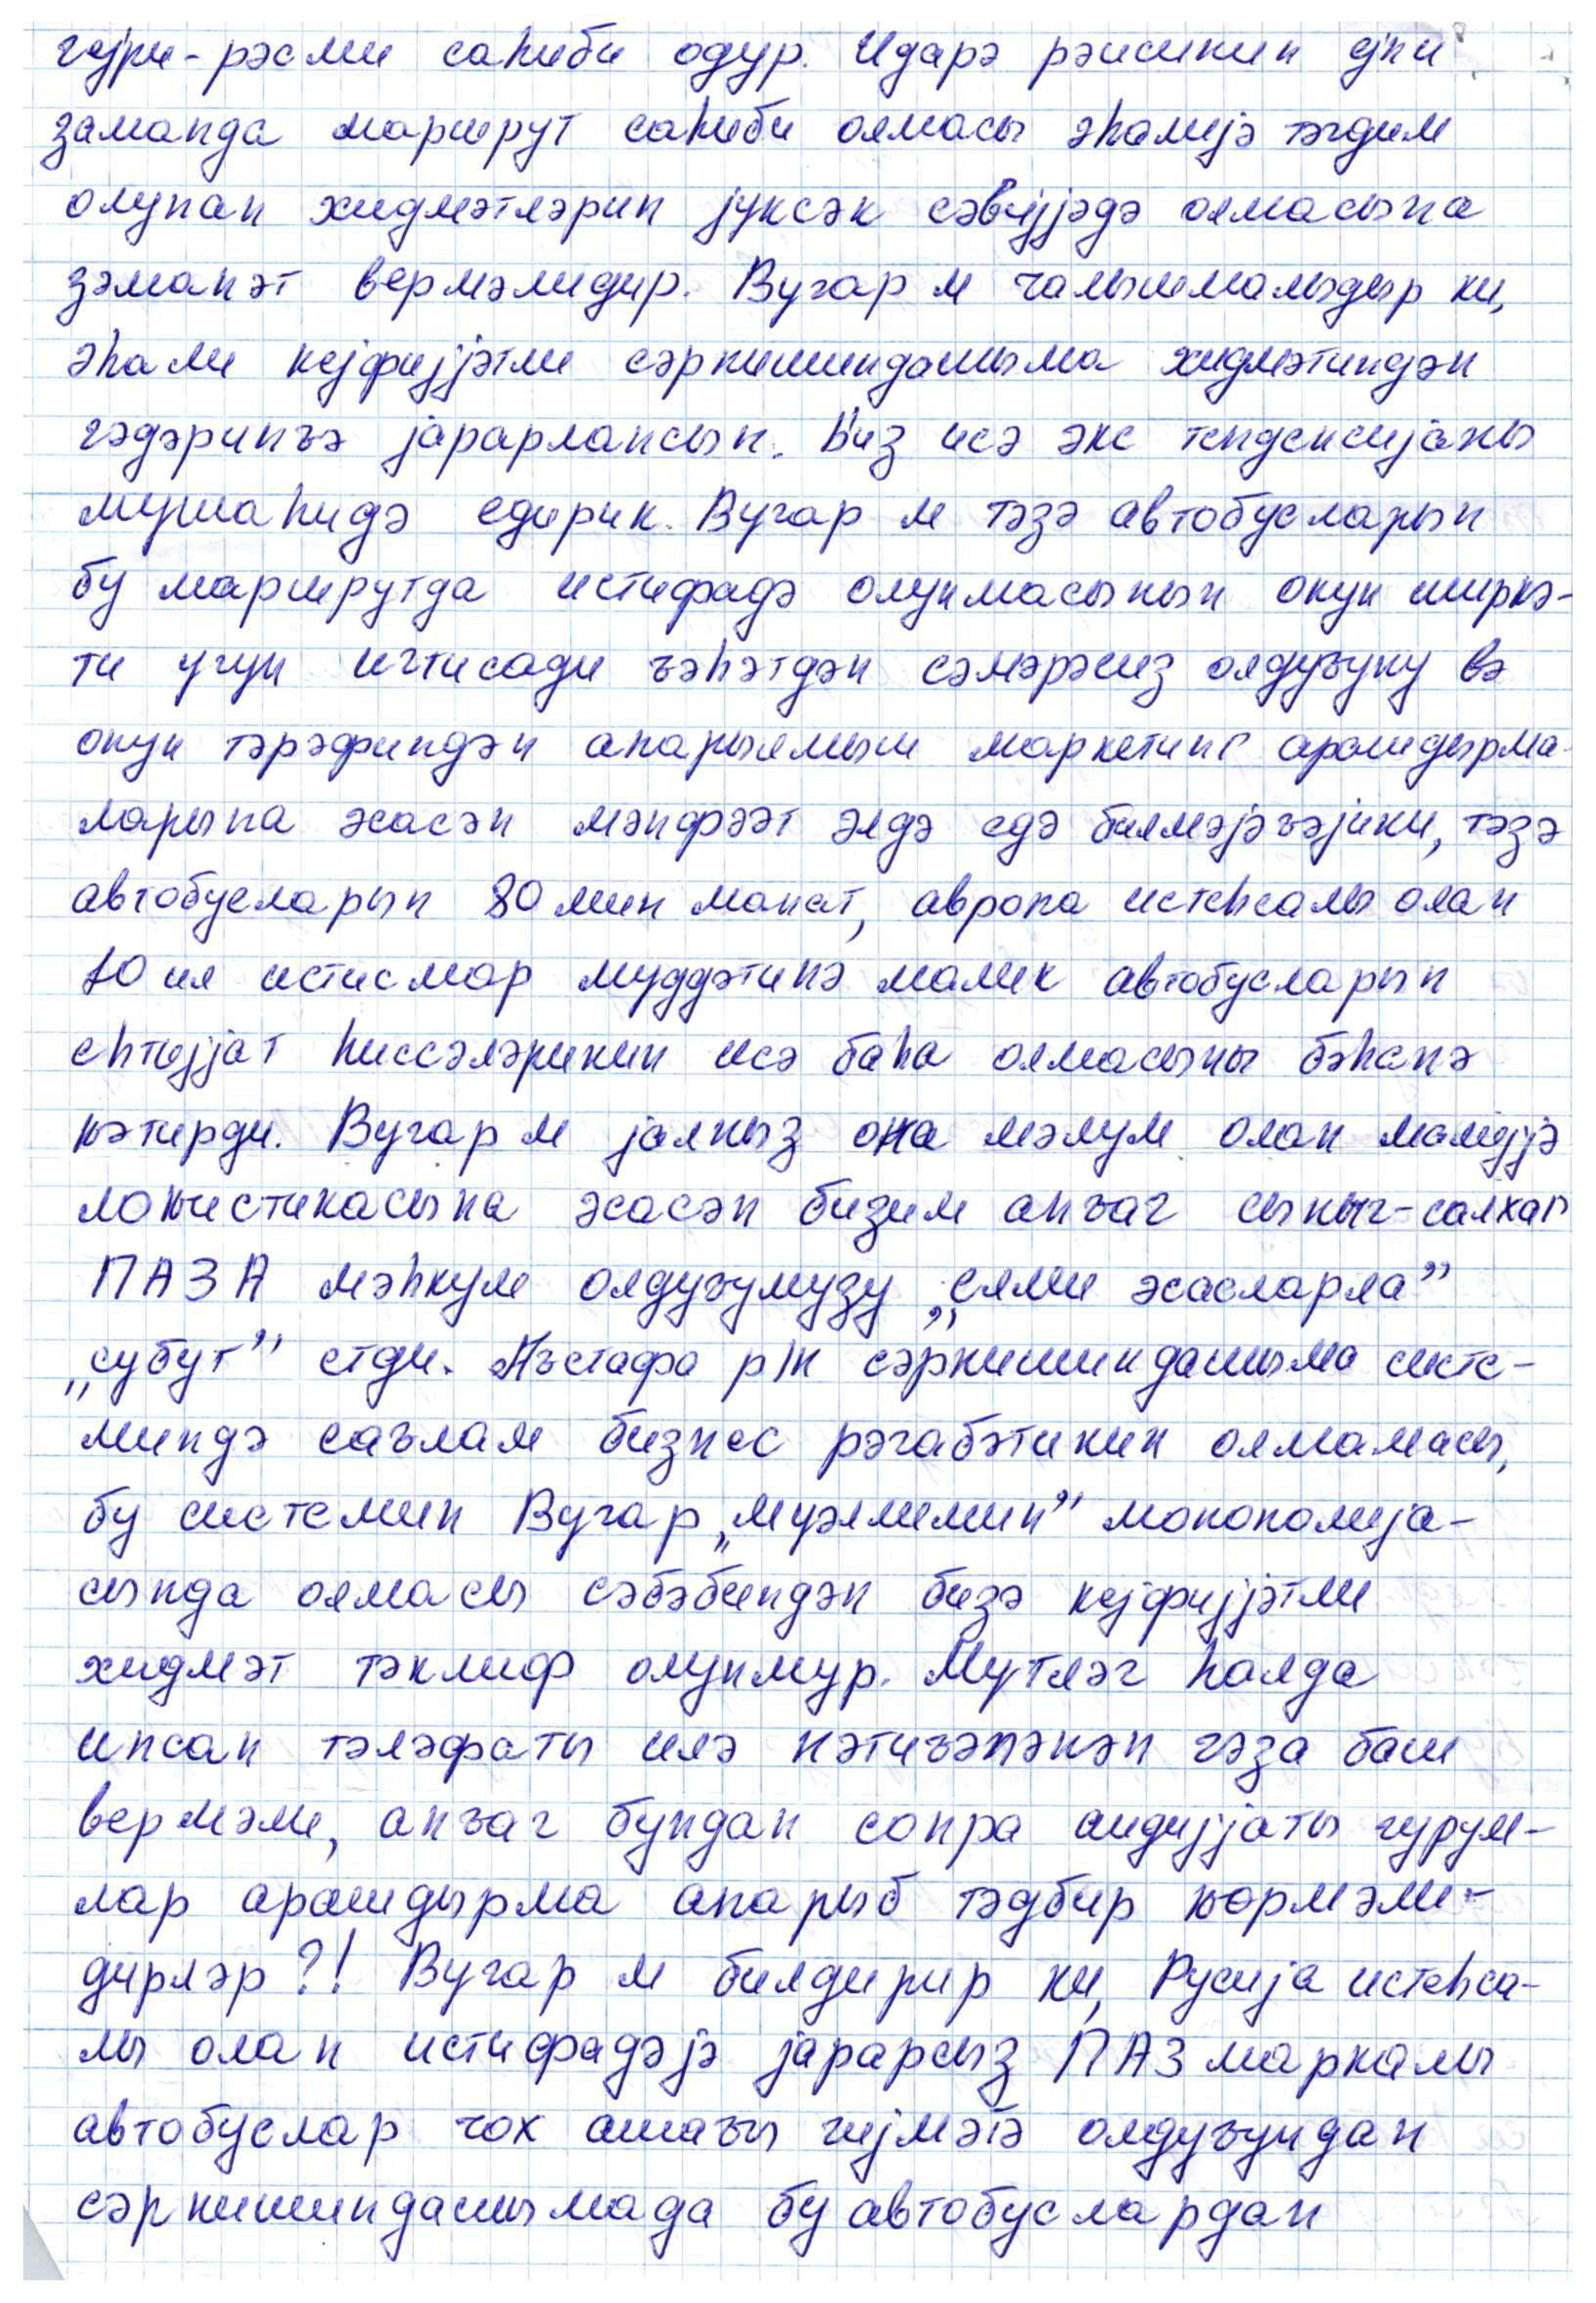 гејри-рәсми саһиби одур. Идарә рәисинин ејни
заманда маршрут саһиби олмасы әһалијә тәгдим
олунан хидмәтләрин јуксәк сәвијјәдә олмасына
зәманәт вермәлидир. Вугар м чалышмалыдыр ки,
әһали кејфијјәтли сәрнишиндашыма хидмәтиндән
гәдәринъә јарарлансын. Биз исә әкс тенденсијаны
мушаһидә едирик. Вугар м тәзә автобусларын
бу маршрутда истифадә олунмасынын онун ширкә-
ти учун игтисади ъәһәтдән сәмәрәсиз олдуъуну вә
онун тәрәфиндән апарылмыш маркетинг арашдырма-
ларына әсасән мәнфәәт әлдә едә билмәјәъәјини, тәзә
автобусларын 80 мин манат, авропа истеһсалы олан
10 ил истисмар муддәтинә малик автобусларын
еһтијјат һиссәләринин исә баһа олмасыны бәһанә
кәтирди. Вугар м јалныз она мәлум олан малијјә
локистикасына әсасән бизим анъаг сыныг-салхаг
ПАЗА мәһкум олдуъумузу „елми әсасларла”
„субут” етди. Аъстафа р/н сәрнишиндашыма систе-
миндә саълам бизнес рәгабәтинин олмамасы,
бу системин Вугар „муәллимин” монополија-
сында олмасы сәбәбиндән бизә кејфијјәтли
хидмәт тәклиф олунмур. Мутләг һалда
инсан тәләфаты илә нәтиъәләнән гәза баш
вермәли, анъаг бундан сонра аидијјаты гурум-
лар арашдырма апарыб тәдбир кормәли-
дирләр?! Вугар м билдирир ки, Русија истеһса-
лы олан истифадәјә јарарсыз ПАЗ маркалы
автобуслар чох ашаъы гијмәтә олдуъундан
сәрнишиндашымада бу автобуслардан